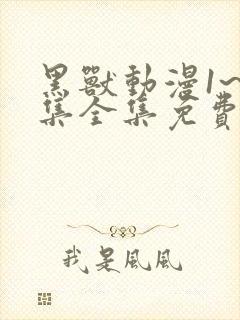 黑獸動漫1~
集全集免費
我是風風